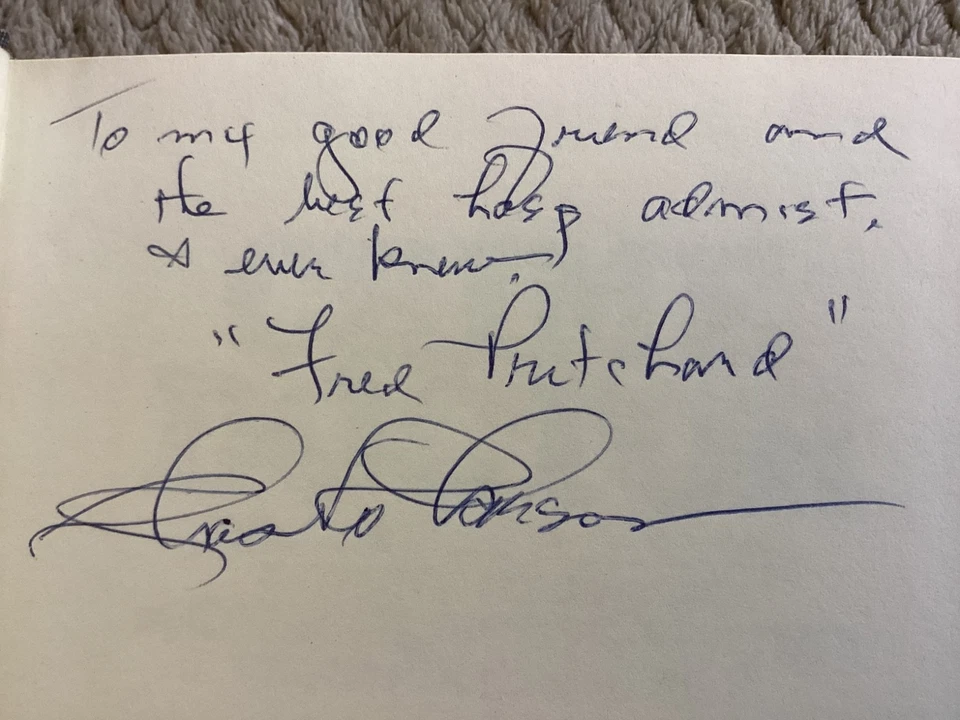 To my good Friend and
the best hosp admist,
I ever knew.
"Fred Pritchard"